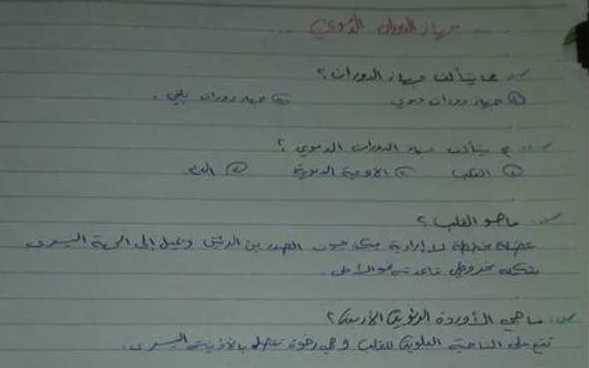 جهاز الدوران الدموي
س: مما يتألف جهاز الدوران؟
① جهاز دوران دموي ② جهاز دوران بلغمي.
س: مم يتألف جهاز الدوران الدموي؟
① القلب ② الأوعية الدموية ③ الدم
س: ما هو القلب؟
عضلة مخططة لا إرادية جوف الصدر بين الرئتين وتميل إلى الجهة اليسرى
شكله مخروطي قاعدته نحو الأعلى.
س: ما هي الأوردة الرئوية الأربعة؟
تقع على الناحية العلوية للقلب وهي تتصل بالأذينة اليسرى.